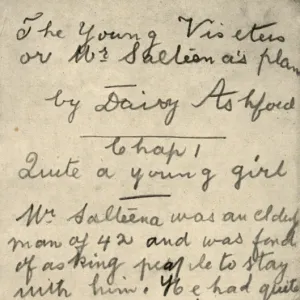 The Young Visiters
or Mr Salteena's plan
by Daisy Ashford
Chap 1
Quite a young girl
Mr Salteena was an elderly
man of 42 and was fond
of asking people to stay
with him. He had quite